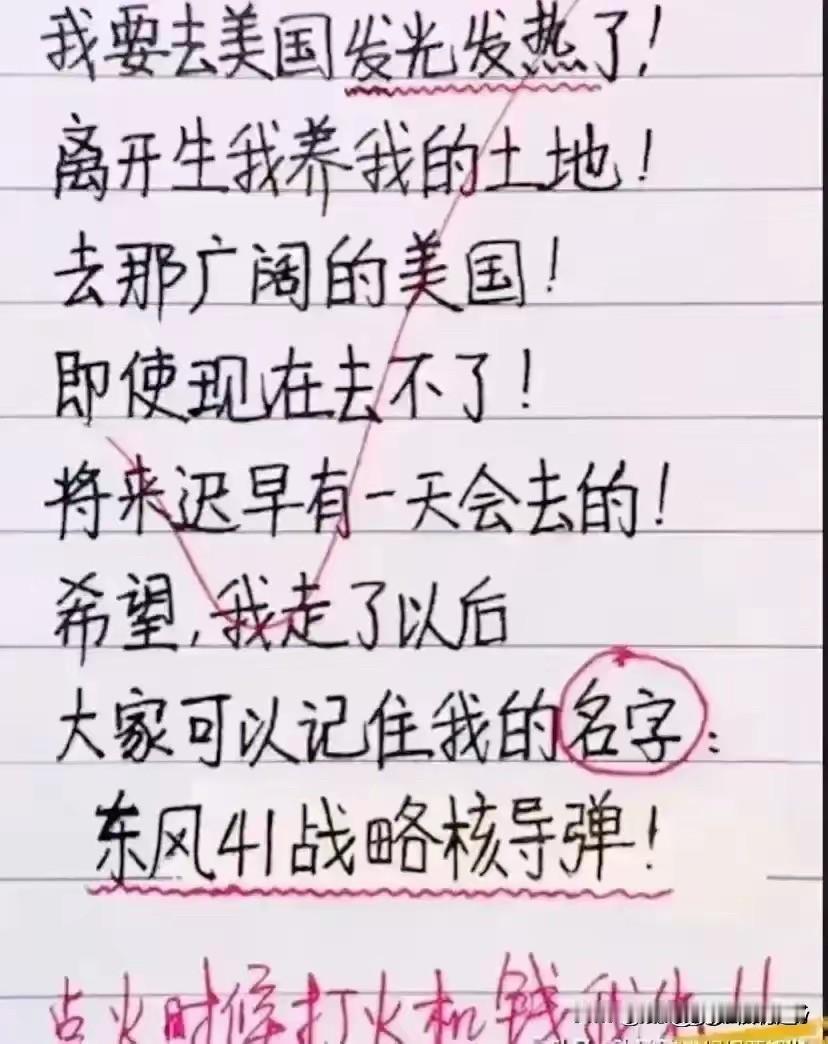 我要去美国发光发热了!
离开生我养我的土地!
去那广阔的美国!
即使现在去不了!
将来迟早有一天会去的!
希望,我走了以后
大家可以记住我的名字:
东风41战略核导弹!
点火时候打火机钱我出!!